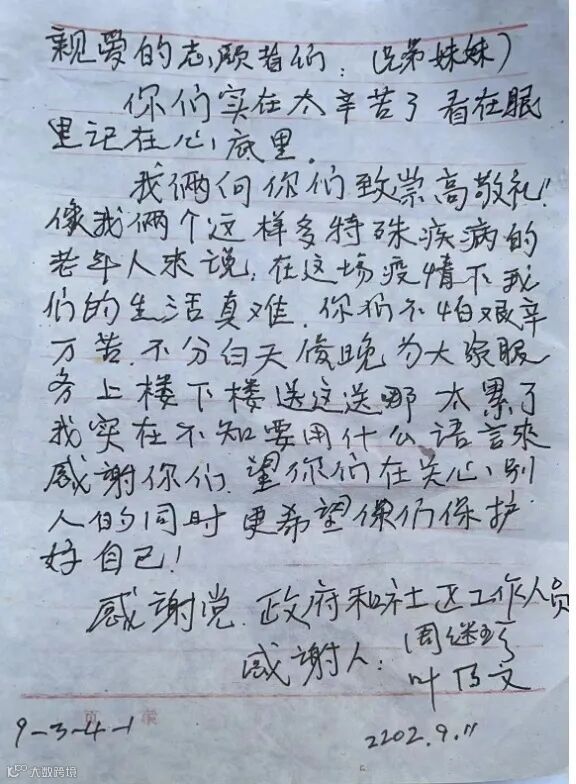 亲爱的志愿者们：(兄弟妹妹)
你们实在太辛苦了看在眼
里记在心底里.
我俩向你们致崇高敬礼!
像我俩个这样多特殊疾病的
老年人來说,在这场疫情下我
们的生活真难.你们不怕艰辛
万苦.不分白天傍晚为大家服
务上楼下楼送这送那太累了
我实在不知要用什么语言來
感谢你们.望你们在关心别
人的同时更希望你们保护
好自己!
感谢党.政府和社区工作人员
感谢人:周继
叶乃文
9-3-4-1
2202.9.11
大数跨境